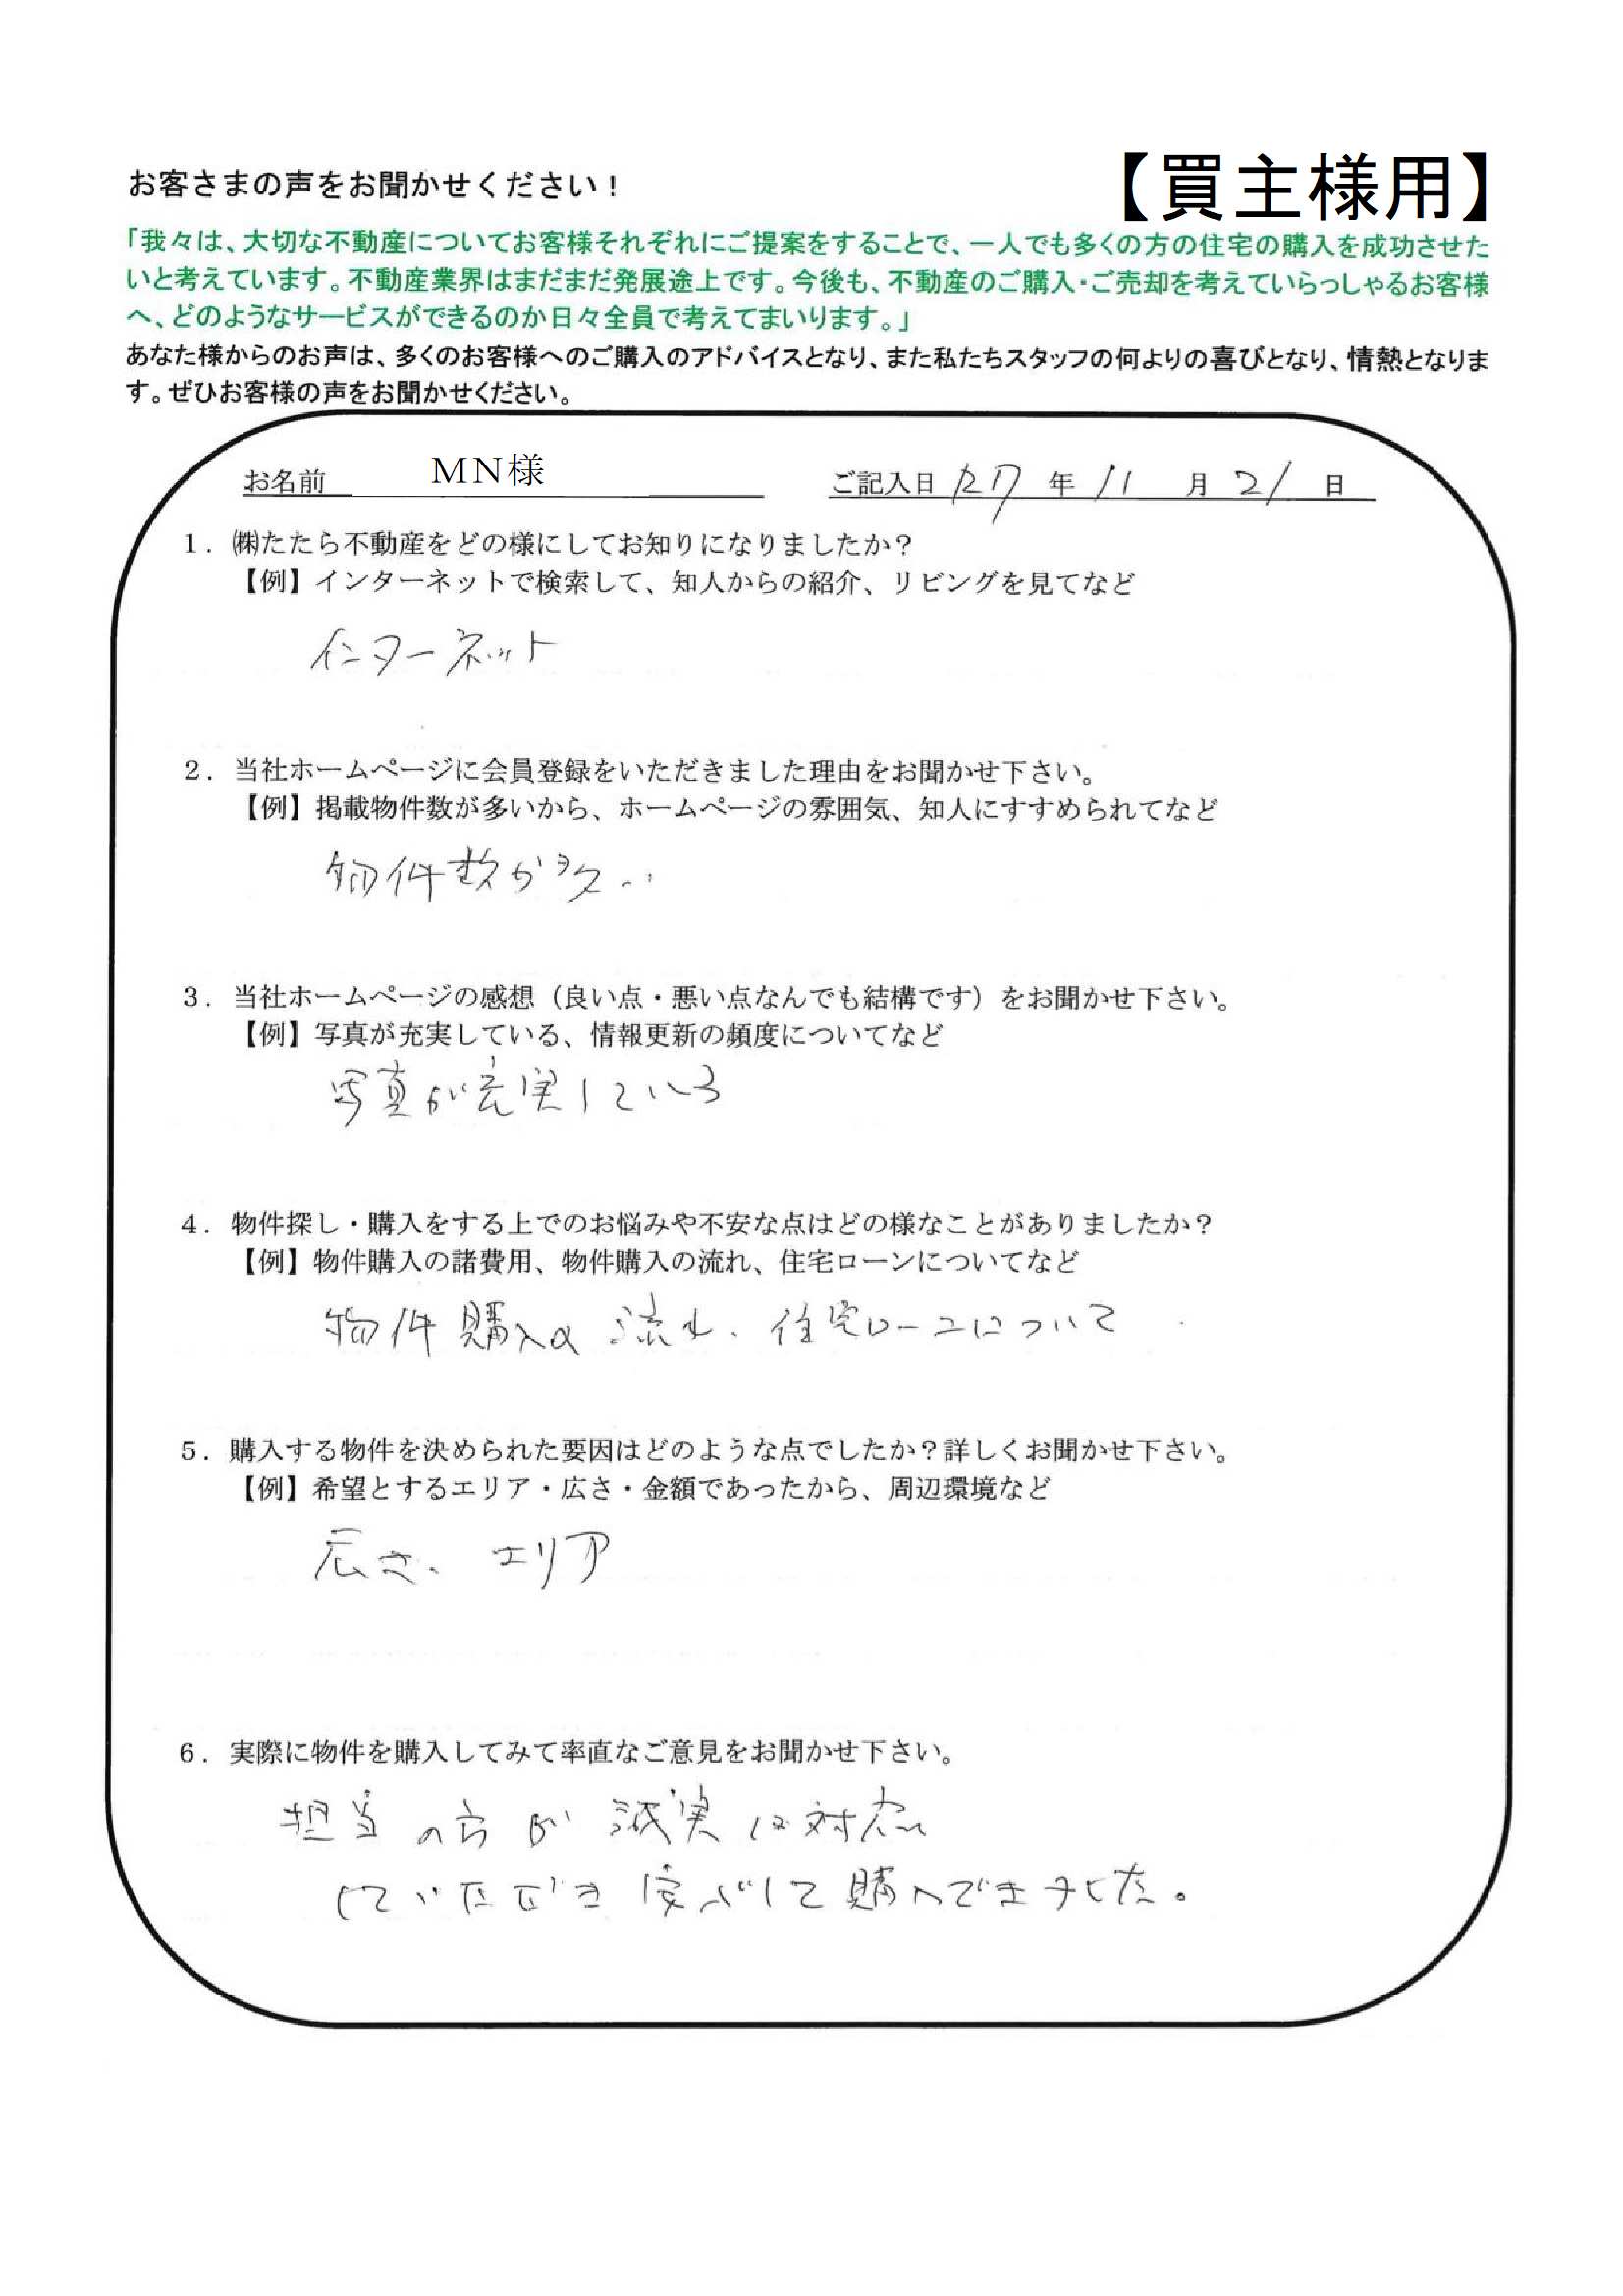 【買主様用】
お客さまの声をお聞かせください！
「我々は、大切な不動産についてお客様それぞれにご提案をすることで、一人でも多くの方の住宅の購入を成功させた
いと考えています。不動産業界はまだまだ発展途上です。今後も、不動産のご購入・ご売却を考えていらっしゃるお客様
へ、どのようなサービスができるのか日々全員で考えてまいります。」
あなた様からのお声は、多くのお客様へのご購入のアドバイスとなり、また私たちスタッフの何よりの喜びとなり、情熱となりま
す。ぜひお客様の声をお聞かせください。
お名前 MN様 ご記入日 H27 年 11 月 21 日
1．㈱たたら不動産をどの様にしてお知りになりましたか？
【例】インターネットで検索して、知人からの紹介、リビングを見てなど
インターネット
2．当社ホームページに会員登録をいただきました理由をお聞かせ下さい。
【例】掲載物件数が多いから、ホームページの雰囲気、知人にすすめられてなど
物件数が多い
3．当社ホームページの感想（良い点・悪い点なんでも結構です）をお聞かせ下さい。
【例】写真が充実している、情報更新の頻度についてなど
写真が充実している
4．物件探し・購入をする上でのお悩みや不安な点はどの様なことがありましたか？
【例】物件購入の諸費用、物件購入の流れ、住宅ローンについてなど
物件購入の流れ、住宅ローンについて
5．購入する物件を決められた要因はどのような点でしたか？詳しくお聞かせ下さい。
【例】希望とするエリア・広さ・金額であったから、周辺環境など
広さ、エリア
6．実際に物件を購入してみて率直なご意見をお聞かせ下さい。
担当の方が誠実に対応
していただき安心して購入できました。